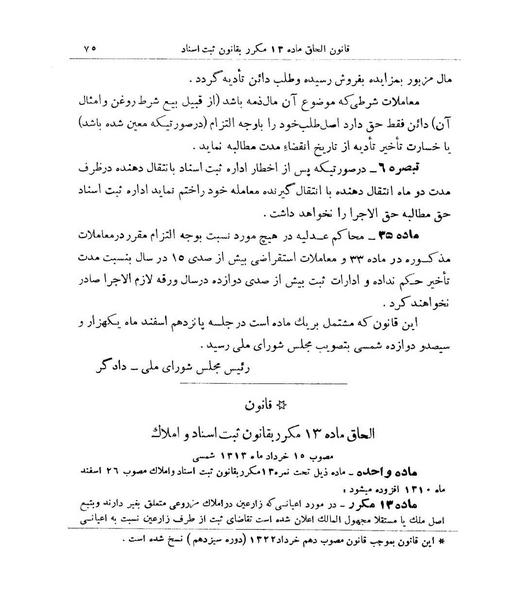 قانون الحاق ماده ۱۳ مکرر بقانون ثبت اسناد ۷۵
مال مزبور بمزایده بفروش رسیده وطلب دائن تأدیه گردد .
معاملات شرطی که موضوع آن مال‌ذمه باشد (از قبیل بیع شرط روغن وامثال
آن) دائن فقط حق دارد اصل‌طلب‌خود را باوجه التزام (درصورتیکه معین شده باشد)
یا خسارت تأخیر تأدیه از تاریخ انقضاء مدت مطالبه نماید .
تبصره ۶ ـ درصورتیکه پس از اخطار اداره ثبت اسناد بانتقال دهنده درظرف
مدت دو ماه انتقال دهنده با انتقال گیرنده معامله خود راختم نماید اداره ثبت اسناد
حق مطالبه حق الاجرا را نخواهد داشت .
ماده ۳۵ ـ محاکم عدلیه در هیچ مورد نسبت بوجه التزام مقرر درمعاملات
مذکوره در ماده ۳۳ و معاملات استقراضی بیش از صدی ۱۵ در سال بنسبت مدت
تأخیر حکم نداده و ادارات ثبت بیش از صدی دوازده درسال ورقه لازم الاجرا صادر
نخواهند کرد .
این قانون که مشتمل بریك ماده است در جلسه پانزدهم اسفند ماه یکهزار و
سیصدو دوازده شمسی بتصویب مجلس شورای ملی رسید .
رئیس مجلس شورای ملی ـ دادگر
* قانون
الحاق ماده ۱۳ مکرر بقانون ثبت اسناد و املاك
مصوب ۱۵ خرداد ماه ۱۳۱۳ شمسی
ماده واحده ـ ماده ذیل تحت نمره ۱۳ مکرر بقانون ثبت اسناد واملاك مصوب ۲۶ اسفند
ماه ۱۳۱۰ افزوده میشود :
ماده ۱۳ مکرر ـ در مورد اعیانی که زارعین دراملاك مزروعی متعلق بغیر دارند وبتبع
اصل ملك یا مستقلا مجهول المالك اعلان شده است تقاضای ثبت از طرف زارعین نسبت به اعیانی
* این قانون بموجب قانون مصوب دهم خرداد ۱۳۲۲ (دوره سیزدهم) نسخ شده است .